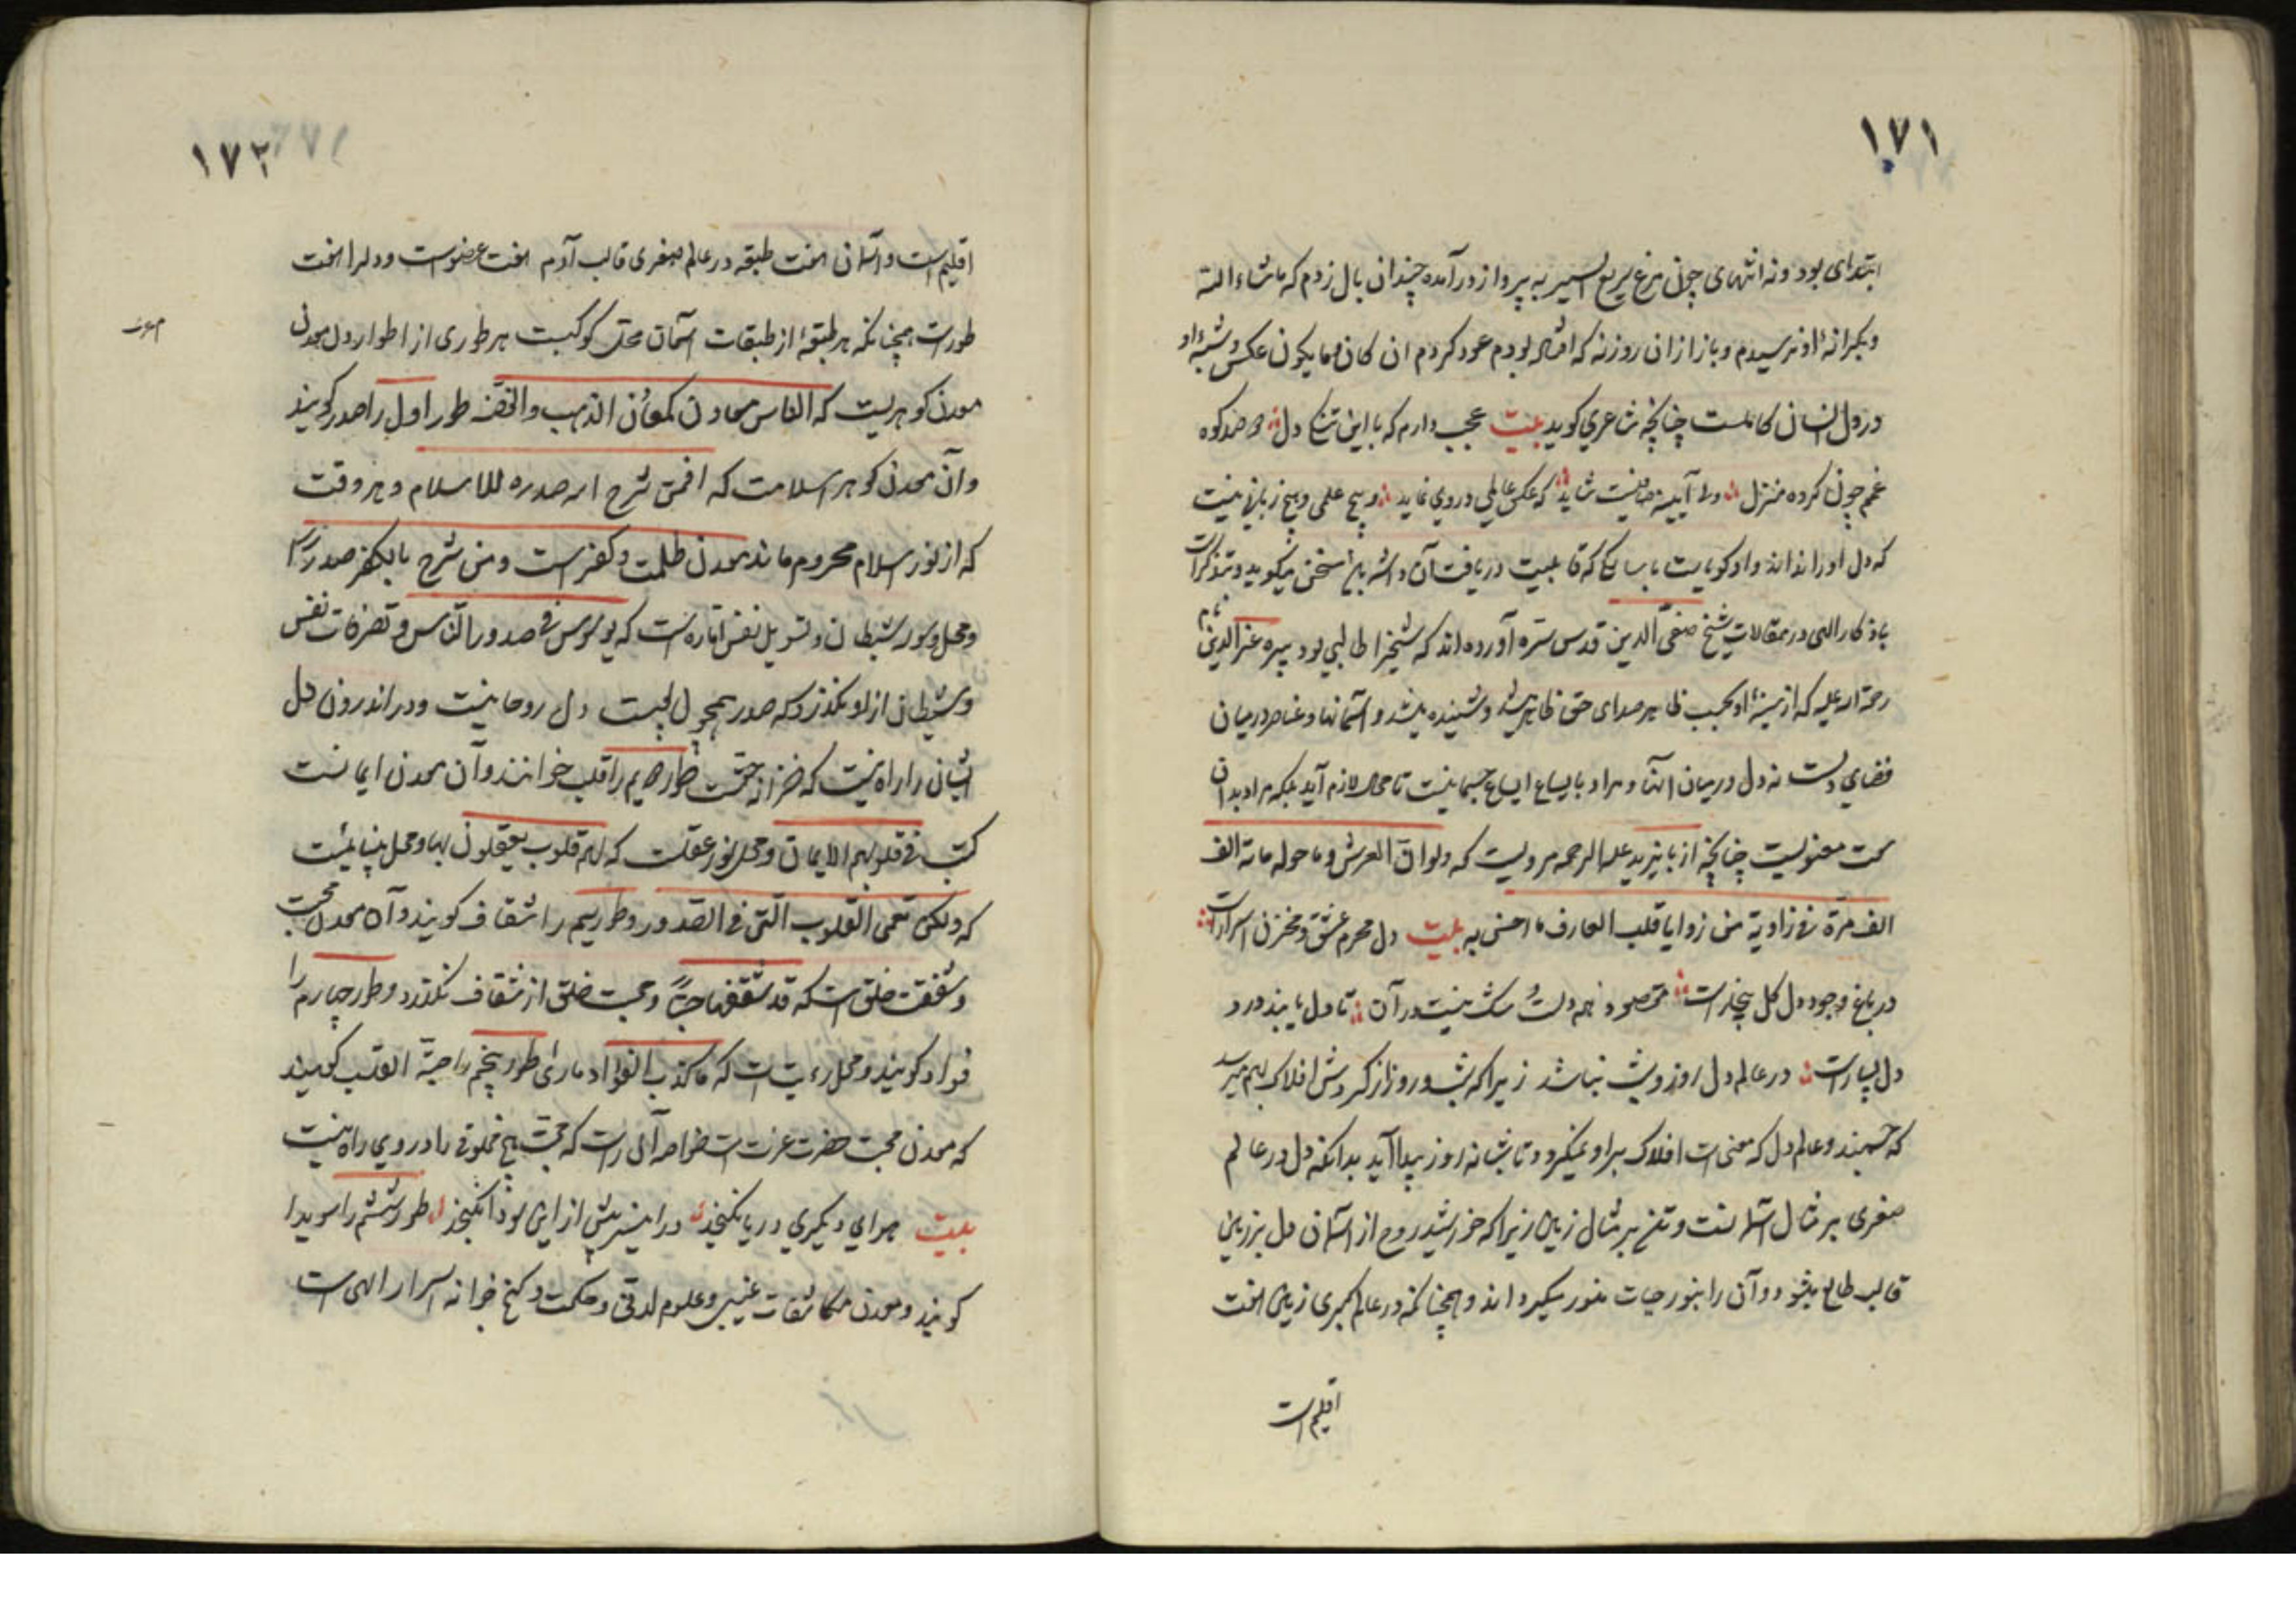 ۱۷۱
ابتدای بود و نه انتهای چون مرغ سریع السیر به پرواز درآمده چندان بال زدم که ماشاء الله
و بکرانهٔ او نرسیدم و باز ازان روزنه که افتاده بودم عود کردم ان کان وما یکون عکس و شبه او
در دل انسان کاملست چنانچه شاعری کوید بیت عجب دارم که با این تنکی دل صد کوه
غم چون کرده منزل ولا آیینه صافیست شاید که عکس عالمی در وی نماید و هیچ علمی و هیچ زبانی نیست
که دل اورا نداند و او کویاست با سالکی که قابلیت دریافت آن داشته باشد سخن میکوید و متذکر است
باذکار الهی در مقالات شیخ صفی الدین قدس سره آورده اند که شیخ را طالبی بود پیره عزالدین نام
رحمة الله علیه که از سینهٔ او بحسب ظاهر صدای حق ظاهر میشد و شنیده میشد و آسمانها و عناصر درمیان
فضای دلست نه دل درمیان آنها و مراد بایساع ایساع جسمانی نیست تا محال لازم آید بلکه مراد بدان
سعت معنویست چنانچه از بایزید علیه الرحمه مرویست که ولو ان العرش وما حوله مائة الف
الف مرة فی زاویة من زوایا قلب العارف ما احس به بیت دل محرم عشق و مخزن اسرارست
در باغ وجود دل کل بیخارست مقصود همه دلست شک نیست در آن تا دل یابند درد
دل بسیارست در عالم دل روز و شب نباشد زیرا که شب و روز از کردش افلاک بهم میرسد
که جسمند و عالم دل که معنی است افلاک بر او نمیکردد تا شبانه روز پیدا آید بدانکه دل در عالم
صغری بر مثال آسمانست و تن بر مثال زمین زیرا که خورشید روح از آسمان دل بر زمین
قالب طالع میشود و آن را بنور حیات منور میکرداند و همچنانکه در عالم کبری زمین هفت
اقلیم است
۱۷۲
اقلیم است و آسمان هفت طبقه در عالم صغری قالب آدم هفت عضوست و دلرا هفت
طورست همچنانکه هر طبقهٔ از طبقات آسمان محل کوکبیست هر طوری از اطوار دل معدن
معدن کوهریست که الناس معادن کمعادن الذهب والفضه طور اول را صدر کویند
و آن معدن کوهر اسلامست که افمن شرح الله صدره للاسلام و هر وقت
که از نور اسلام محروم ماند معدن ظلمت و کفر است و من شرح بالکفر صدرا
و محل وسور شیطان و تسویل نفس اماره است که یوسوس فی صدور الناس و تصرفات نفس
و شیطان از او نکذرد که صدر همچو پوست دل روحانیست و در اندرون دل
ایشان را راه نیست که خزانهٔ حقست طور دویم را قلب خوانند و آن معدن ایمانست
کتب فی قلوبهم الایمان و محل نور عقلست که لهم قلوب یعقلون بها و محل بینائیست
که ولکن تعمی القلوب التی فی الصدور و طور سیم را شغاف کویند و آن معدن محبت
و شفقت خلق است که قد شغفها حبا و محبت خلق از شغاف نکذرد و طور چهارم را
فواد کویند و محل رؤیت است که ما کذب الفواد ما رای طور پنجم را حبة القلب کویند
که معدن محبت حضرت عزت است خواصه آل راست که محبت هیچ مخلوقی را در وی راه نیست
بیت هوای دیکری در ما نکنجد در این سر بیش از این سودا نکنجد طور ششم را سویدا
کویند و معدن مکاشفات غیبی و علوم لدنی و حکمت و کنج خزانه اسرار الهی است